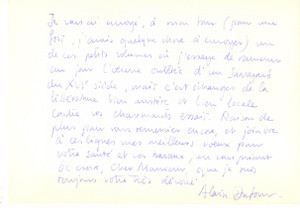 Je vous ai envoyé, à mon tour (pour une
fois, j'avais quelque chose à envoyer) un
de ces petits volumes où j'essaye de ramener
au jour l'œuvre oubliée d'un Savoyard
du XVIe siècle, mais c'est échanger de la
littérature bien austère et bien locale
contre vos charmants essais. Raison de
plus pour vous remercier encore, et joindre
à ces lignes mes meilleurs vœux pour
votre santé et vos travaux, en vous priant
de croire, cher Monsieur, que je suis
toujours votre très dévoué
Alain Dufour